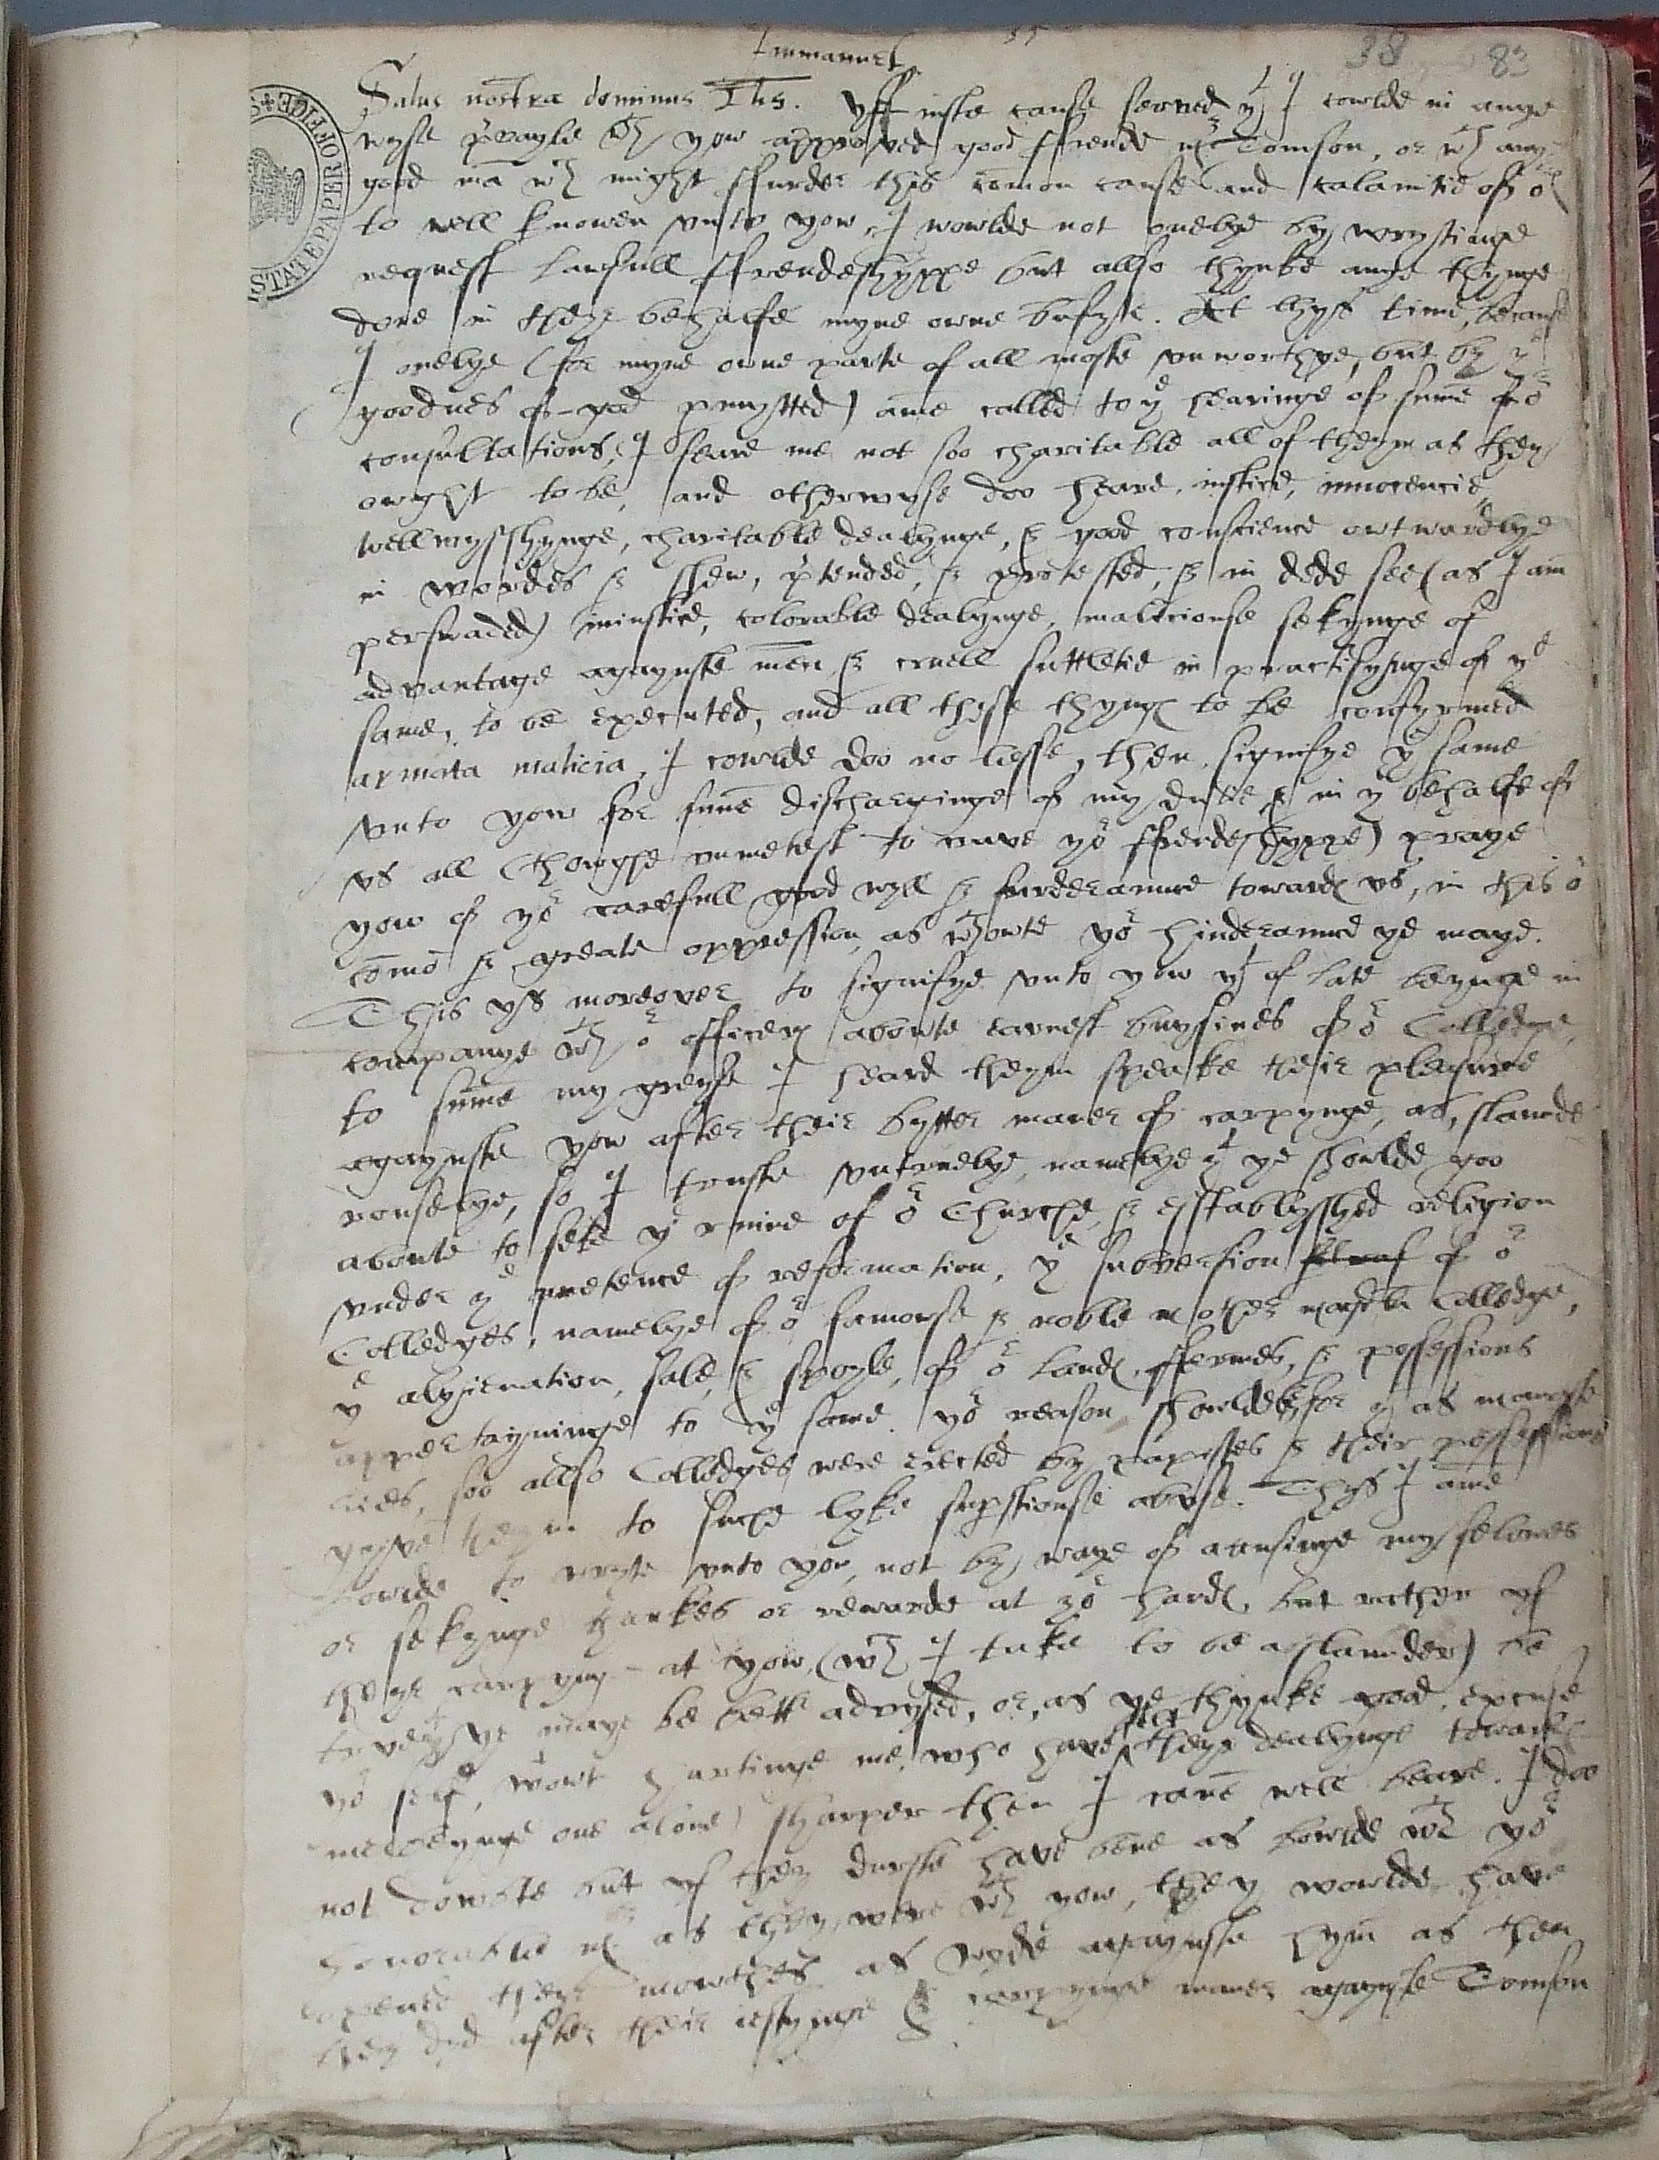 Immanuel
38 83
STATE PAPER OFFICE
Salus nostra dominus Ihs. yff iuste cause served yt I cowlde in anye
wyse pvayle wth yow approved good ffrende mr Tomson, or wth any
good mā wch might ffurder this cōmon cause and calamitie of or
to well knowen vnto yow, I wowlde not onelye by wrystinge
request lawfull ffrendeshyppe but allso thynke anye thynge
done in theyr behalfe myne owne busyn. At thys time, because
I onelye (for myne owne parte of all moste vnworthye, but by ye
goodnes of god pmytted) ame called to ye hearinge of sume of or
consultations, I feare me not soo charitable all of theym as they
owght to be, and otherwyse doo heare, iustice, innocencie,
wellwysshynge, charitable dealynge, & good conscience owtwardlye
in wordes & shew, ptended, & protessted, & in dede see (as I am
perswaded) iniustice, colorable dealynge, maliciouse sekynge of
advantage agaynste men & cruell suttletie in practisynge of ye
same, to be executed, and all these thyngs to be confyrmed
armata malicia, I cowlde doo no lesse, then signifye ye same
vnto yow for sume discharginge of my dutie & in ye behalfe of
vs all (thowghe vnmetest to crave yor ffrendeshyppe) praye
yow of yor carefull good wyll & furderaunce towards vs, in this or
cōmō & greate oppression, as wthowte yor hinderaunce ye maye.
This ys moreover to signifye vnto yow yt of late beynge in
companye wth or officers abowte earnest buysines of or Colledge,
to sume my greyfe I heard theym speake their pleasure
agaynste yow after their bytter maner of carpynge, as, slaunde
rouselye, so I truste vntruelye, namelye yt ye showlde goo
abowte to seke ye ruine of or Churche, & establysshed religion
vnder ye pretence of reformation, ye subversion of or
Colledges, namelye of or famouse & noble mother magdalē Colledge,
ye alyienation, sale, & spoyle, of or lands, ffermes, & possessions
appertayninge to ye same. yor reason showlde be, for yt as
soo allso Colledges were erected by papistes & their possessions
to suche lyke supstiouse abuse. Thys I ame
bowlde to wryte vnto yow, not by waye of accusinge my felowes
or sekynge thankes or rewarde at yor hands, but rather yf
theyr carpyng at yow, (wch I take to be a slaunder) be
trve, yt ye maye be better advysed, or, as ye thynke good, excuse
yor self, wthowt hurtinge me, who have felt theyr dealynge towards
me (beynge one alone) sharper then I cane well beare. I doo
not dowbte but yf they durste have bene as bowlde wth yor
honorable mr as they were wth yow, they wowlde have
opened theyr mowthes as wyde agaynste hym as then
they dyd after their iestynge & carpynge maner agaynste Tomson